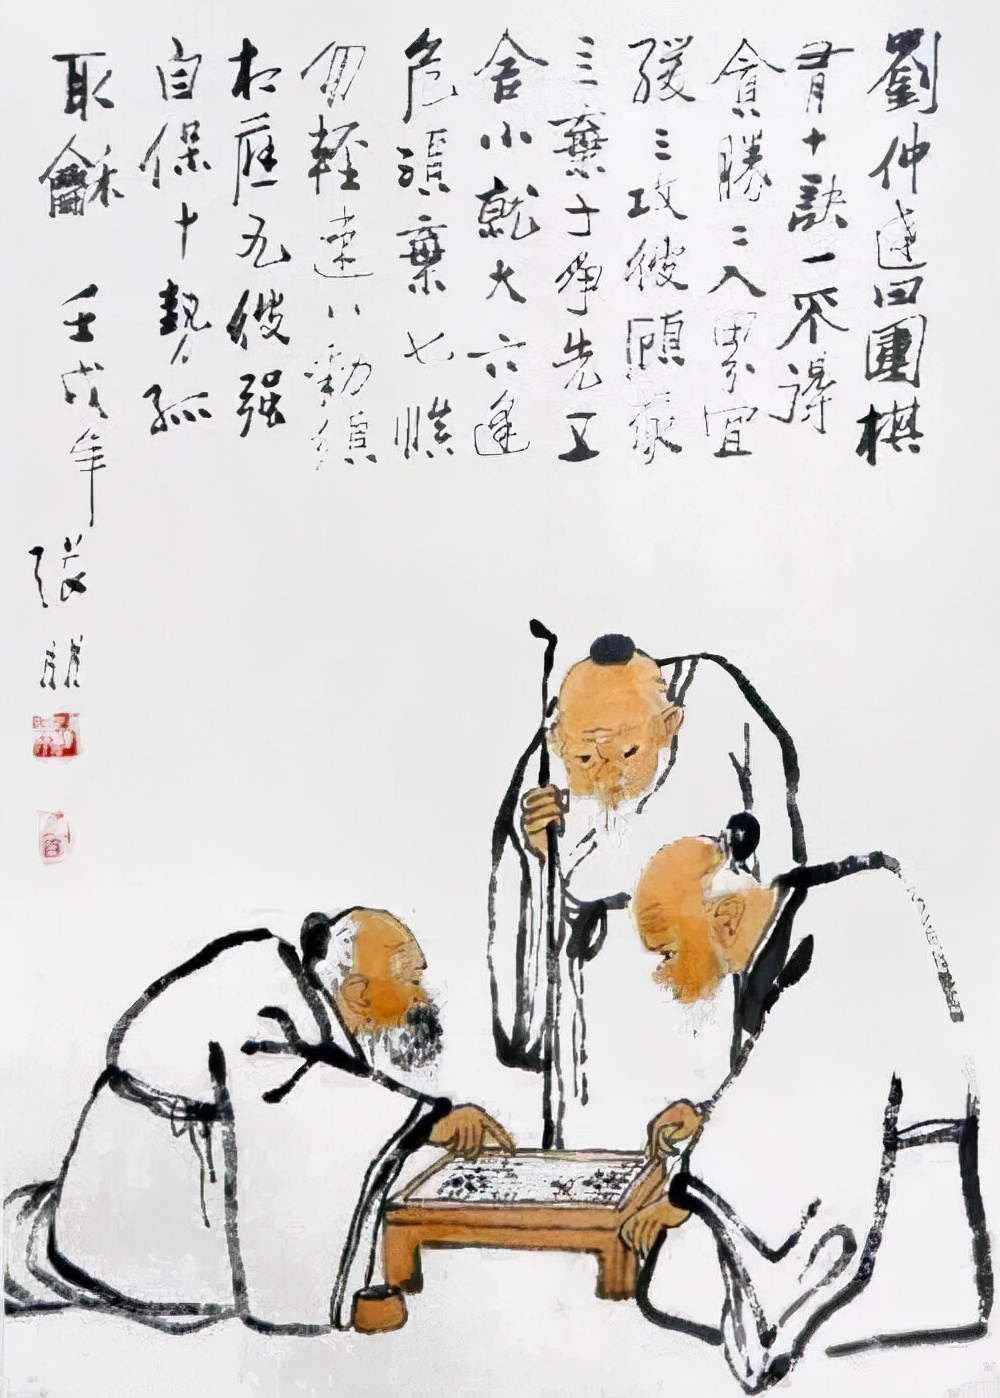 劉仲逹曰圍棋
有十訣一不得
貪勝二入界宜
緩三攻彼顧我
三棄子爭先五
舍小就大六逢
危須棄七慎
勿輕速八動須
相應九彼强
自保十勢孤
取龢 壬戌年 張朋